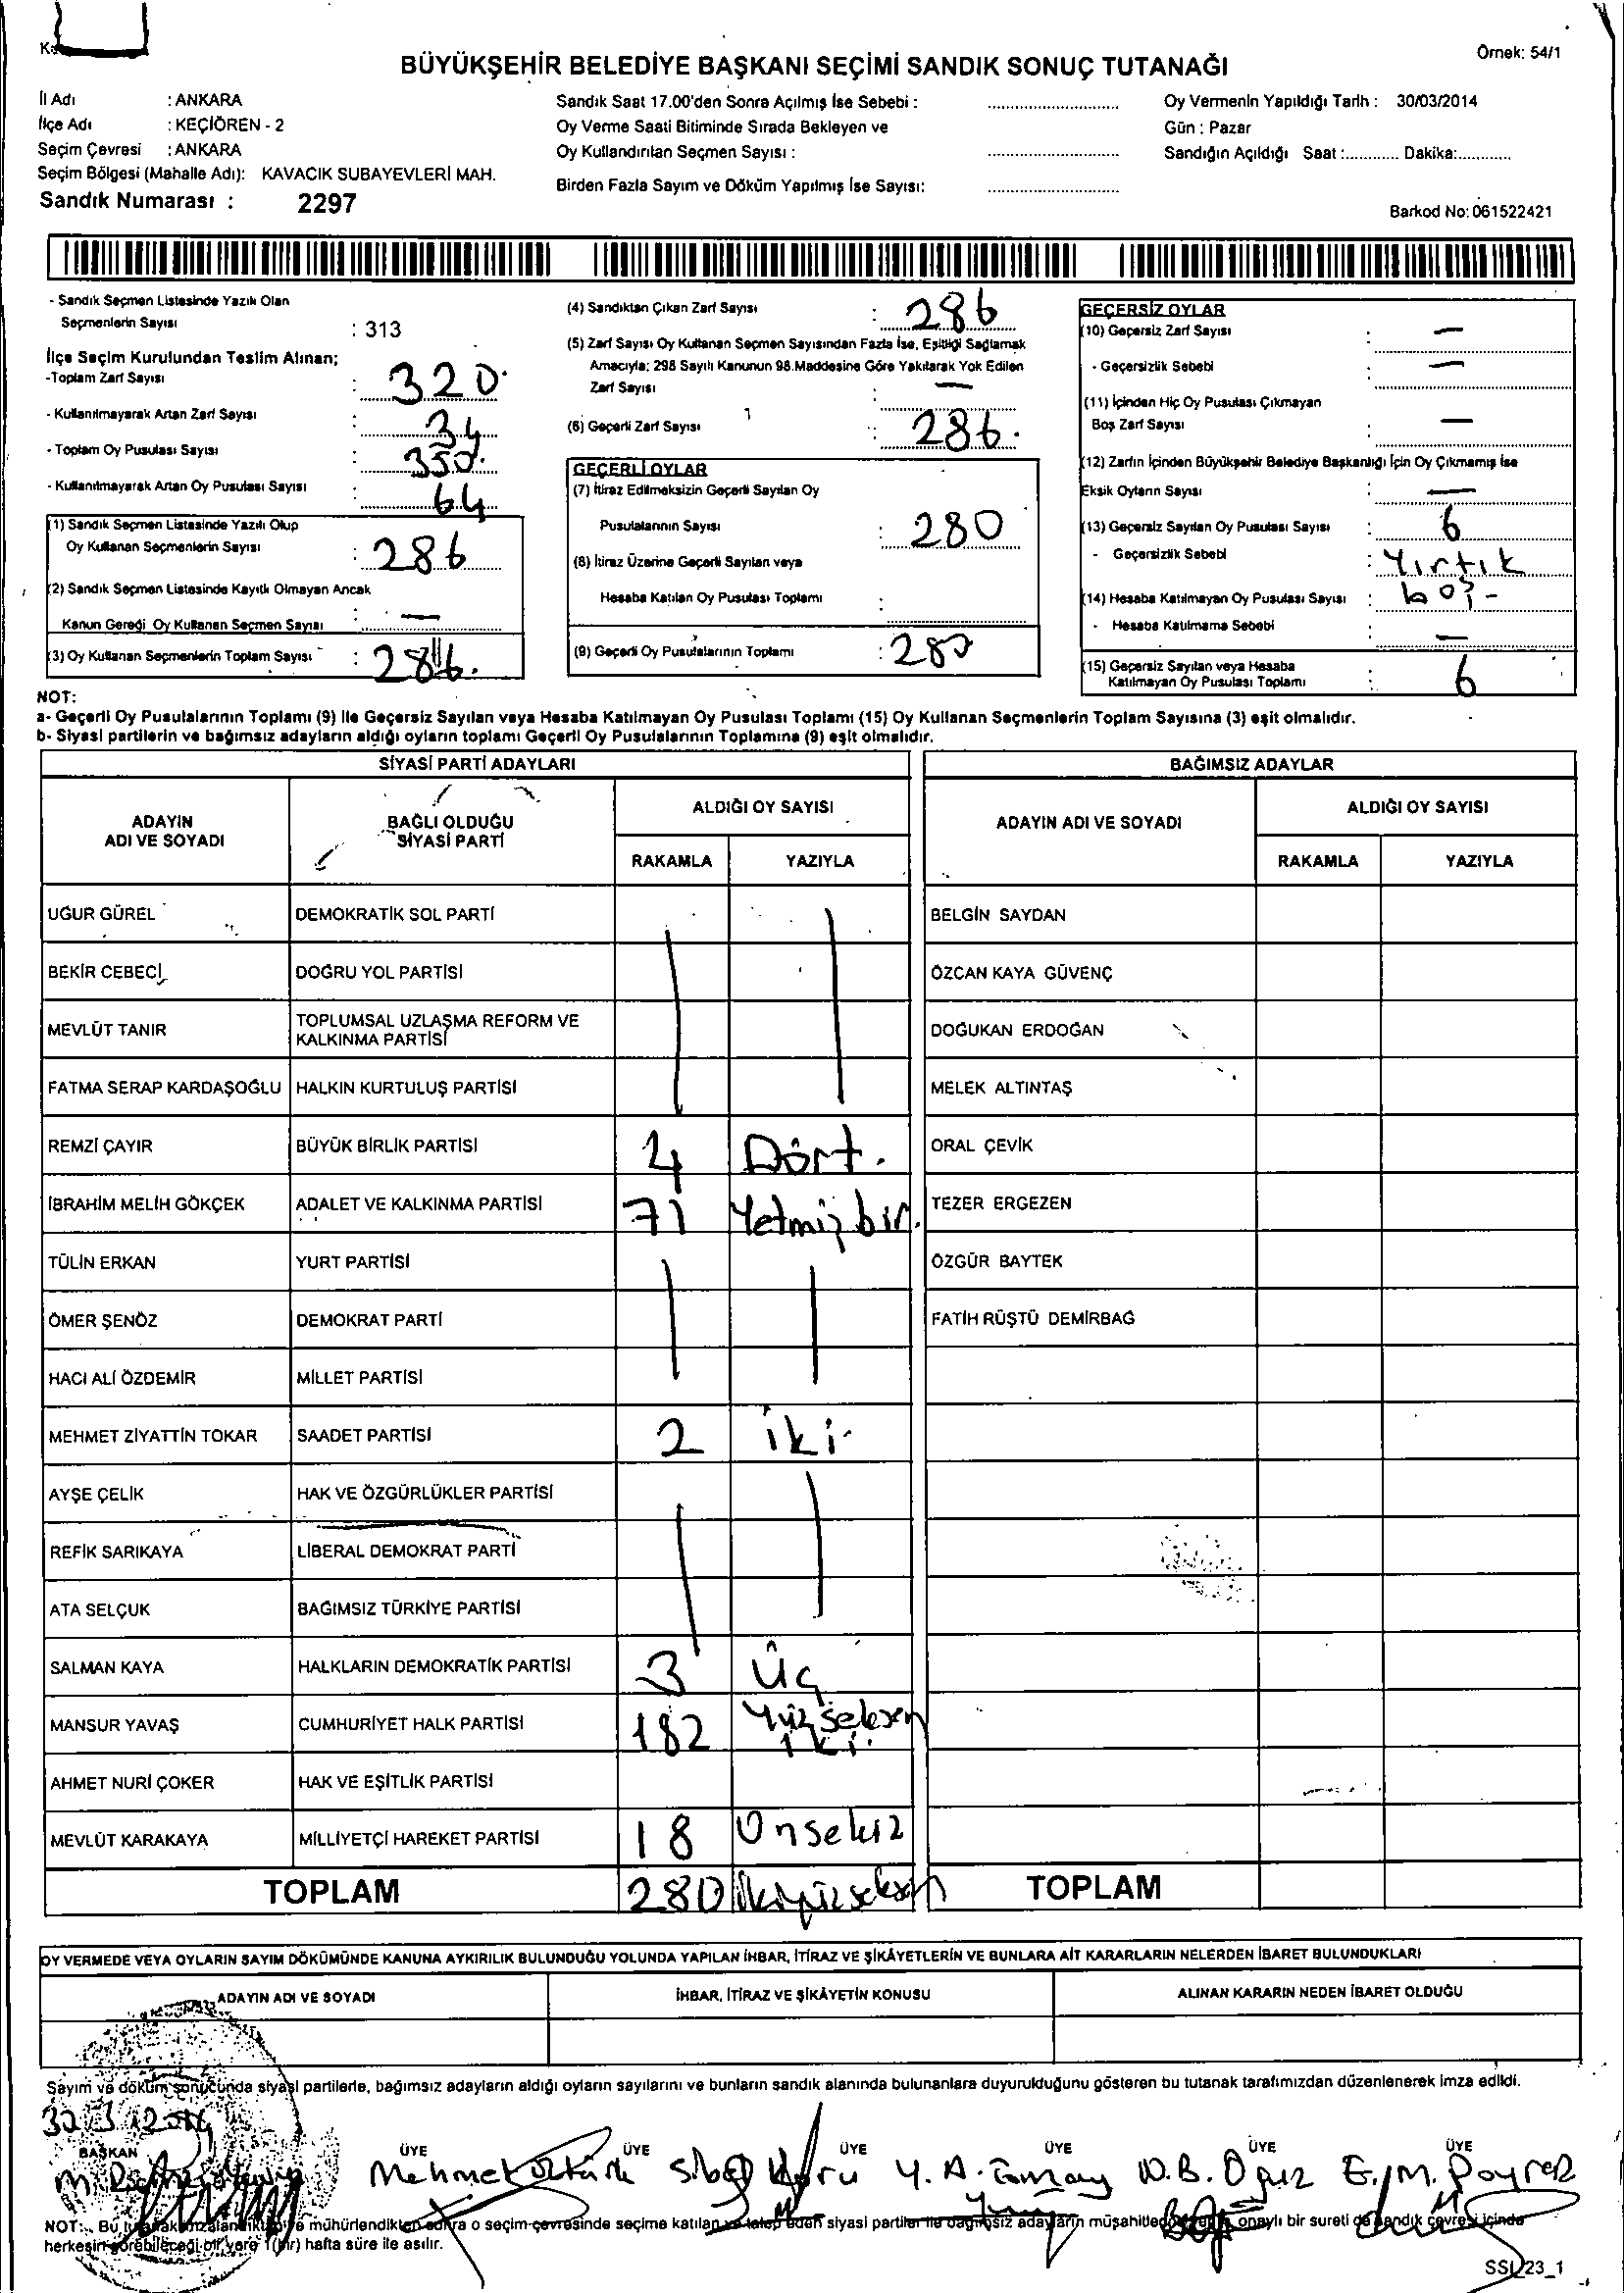 BÜYÜKŞEHİR BELEDİYE BAŞKANI SEÇİMİ SANDIK SONUÇ TUTANAĞI
Örnek: 54/1
İl Adı : ANKARA
İlçe Adı : KEÇİÖREN - 2
Seçim Çevresi : ANKARA
Seçim Bölgesi (Mahalle Adı): KAVACIK SUBAYEVLERİ MAH.
Sandık Numarası : 2297
Sandık Saat 17.00'den Sonra Açılmış İse Sebebi :
Oy Verme Saati Bitiminde Sırada Bekleyen ve
Oy Kullandırılan Seçmen Sayısı :
Birden Fazla Sayım ve Döküm Yapılmış İse Sayısı:
Oy Vermenin Yapıldığı Tarih : 30/03/2014
Gün : Pazar
Sandığın Açıldığı Saat :............ Dakika:............
Barkod No: 061522421
- Sandık Seçmen Listesinde Yazılı Olan
Seçmenlerin Sayısı : 313
İlçe Seçim Kurulundan Teslim Alınan;
-Toplam Zarf Sayısı : 320
- Kullanılmayarak Artan Zarf Sayısı : 34
- Toplam Oy Pusulası Sayısı : 350
- Kullanılmayarak Artan Oy Pusulası Sayısı : 64
(1) Sandık Seçmen Listesinde Yazılı Olup
Oy Kullanan Seçmenlerin Sayısı : 286
(2) Sandık Seçmen Listesinde Kayıtlı Olmayan Ancak
Kanun Gereği Oy Kullanan Seçmen Sayısı : —
(3) Oy Kullanan Seçmenlerin Toplam Sayısı : 286.
(4) Sandıktan Çıkan Zarf Sayısı : 286
(5) Zarf Sayısı Oy Kullanan Seçmen Sayısından Fazla İse, Eşitliği Sağlamak
Amacıyla; 298 Sayılı Kanunun 98.Maddesine Göre Yakılarak Yok Edilen
Zarf Sayısı : —
(6) Geçerli Zarf Sayısı : 286.
GEÇERLİ OYLAR
(7) İtiraz Edilmeksizin Geçerli Sayılan Oy
Pusulalarının Sayısı : 280
(8) İtiraz Üzerine Geçerli Sayılan veya
Hesaba Katılan Oy Pusulası Toplamı :
(9) Geçerli Oy Pusulalarının Toplamı : 280
GEÇERSİZ OYLAR
(10) Geçersiz Zarf Sayısı : —
- Geçersizlik Sebebi : —
(11) İçinden Hiç Oy Pusulası Çıkmayan
Boş Zarf Sayısı : —
(12) Zarfın İçinden Büyükşehir Belediye Başkanlığı İçin Oy Çıkmamış İse
Eksik Oyların Sayısı : —
(13) Geçersiz Sayılan Oy Pusulası Sayısı : 6
- Geçersizlik Sebebi : Yırtık
boş -
(14) Hesaba Katılmayan Oy Pusulası Sayısı :
- Hesaba Katılmama Sebebi : —
(15) Geçersiz Sayılan veya Hesaba
Katılmayan Oy Pusulası Toplamı : 6
NOT:
a- Geçerli Oy Pusulalarının Toplamı (9) İle Geçersiz Sayılan veya Hesaba Katılmayan Oy Pusulası Toplamı (15) Oy Kullanan Seçmenlerin Toplam Sayısına (3) eşit olmalıdır.
b- Siyasi partilerin ve bağımsız adayların aldığı oyların toplamı Geçerli Oy Pusulalarının Toplamına (9) eşit olmalıdır.
SİYASİ PARTİ ADAYLARI
ADAYIN ADI VE SOYADI
BAĞLI OLDUĞU SİYASİ PARTİ
ALDIĞI OY SAYISI
RAKAMLA YAZIYLA
UĞUR GÜREL DEMOKRATİK SOL PARTİ
BEKİR CEBECİ DOĞRU YOL PARTİSİ
MEVLÜT TANIR TOPLUMSAL UZLAŞMA REFORM VE KALKINMA PARTİSİ
FATMA SERAP KARDAŞOĞLU HALKIN KURTULUŞ PARTİSİ
REMZİ ÇAYIR BÜYÜK BİRLİK PARTİSİ 4 Dört.
İBRAHİM MELİH GÖKÇEK ADALET VE KALKINMA PARTİSİ 71 Yetmiş bir.
TÜLİN ERKAN YURT PARTİSİ
ÖMER ŞENÖZ DEMOKRAT PARTİ
HACI ALİ ÖZDEMİR MİLLET PARTİSİ
MEHMET ZİYATTİN TOKAR SAADET PARTİSİ 2 iki
AYŞE ÇELİK HAK VE ÖZGÜRLÜKLER PARTİSİ
REFİK SARIKAYA LİBERAL DEMOKRAT PARTİ
ATA SELÇUK BAĞIMSIZ TÜRKİYE PARTİSİ
SALMAN KAYA HALKLARIN DEMOKRATİK PARTİSİ 3 Üç
MANSUR YAVAŞ CUMHURİYET HALK PARTİSİ 182 Yüz seksen iki.
AHMET NURİ ÇOKER HAK VE EŞİTLİK PARTİSİ
MEVLÜT KARAKAYA MİLLİYETÇİ HAREKET PARTİSİ 18 Onsekiz
TOPLAM 280 ikiyüzseksen
BAĞIMSIZ ADAYLAR
ADAYIN ADI VE SOYADI
ALDIĞI OY SAYISI
RAKAMLA YAZIYLA
BELGİN SAYDAN
ÖZCAN KAYA GÜVENÇ
DOĞUKAN ERDOĞAN
MELEK ALTINTAŞ
ORAL ÇEVİK
TEZER ERGEZEN
ÖZGÜR BAYTEK
FATİH RÜŞTÜ DEMİRBAĞ
TOPLAM
OY VERMEDE VEYA OYLARIN SAYIM DÖKÜMÜNDE KANUNA AYKIRILIK BULUNDUĞU YOLUNDA YAPILAN İHBAR, İTİRAZ VE ŞİKÂYETLERİN VE BUNLARA AİT KARARLARIN NELERDEN İBARET BULUNDUKLARI
ADAYIN ADI VE SOYADI İHBAR, İTİRAZ VE ŞİKÂYETİN KONUSU ALINAN KARARIN NEDEN İBARET OLDUĞU
Sayım ve döküm sonucunda siyasi partilerle, bağımsız adayların aldığı oyların sayılarını ve bunların sandık alanında bulunanlara duyurulduğunu gösteren bu tutanak tarafımızdan düzenlenerek imza edildi.
30/3/2014
BAŞKAN ÜYE ÜYE ÜYE ÜYE ÜYE ÜYE
Mehmet Öztürk Sibel Koru Y. A. N.B. Oğuz E.M. Poyraz
NOT: Bu mühürlendikten sonra o seçim çevresinde seçime katılan ve talep eden siyasi partiler ile bağımsız adayların onaylı bir sureti de sandık çevresi içinde
herkesin görebileceği bir yere 1(bir) hafta süre ile asılır.
SSL_23_1